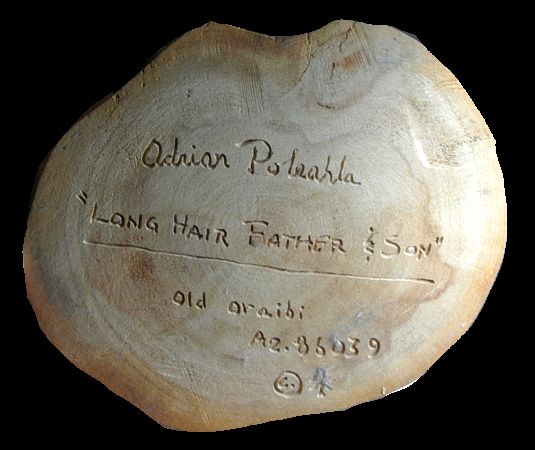 Adrian Poleahla
"LONG HAIR FATHER & SON"
Old oraibi
AZ. 86039